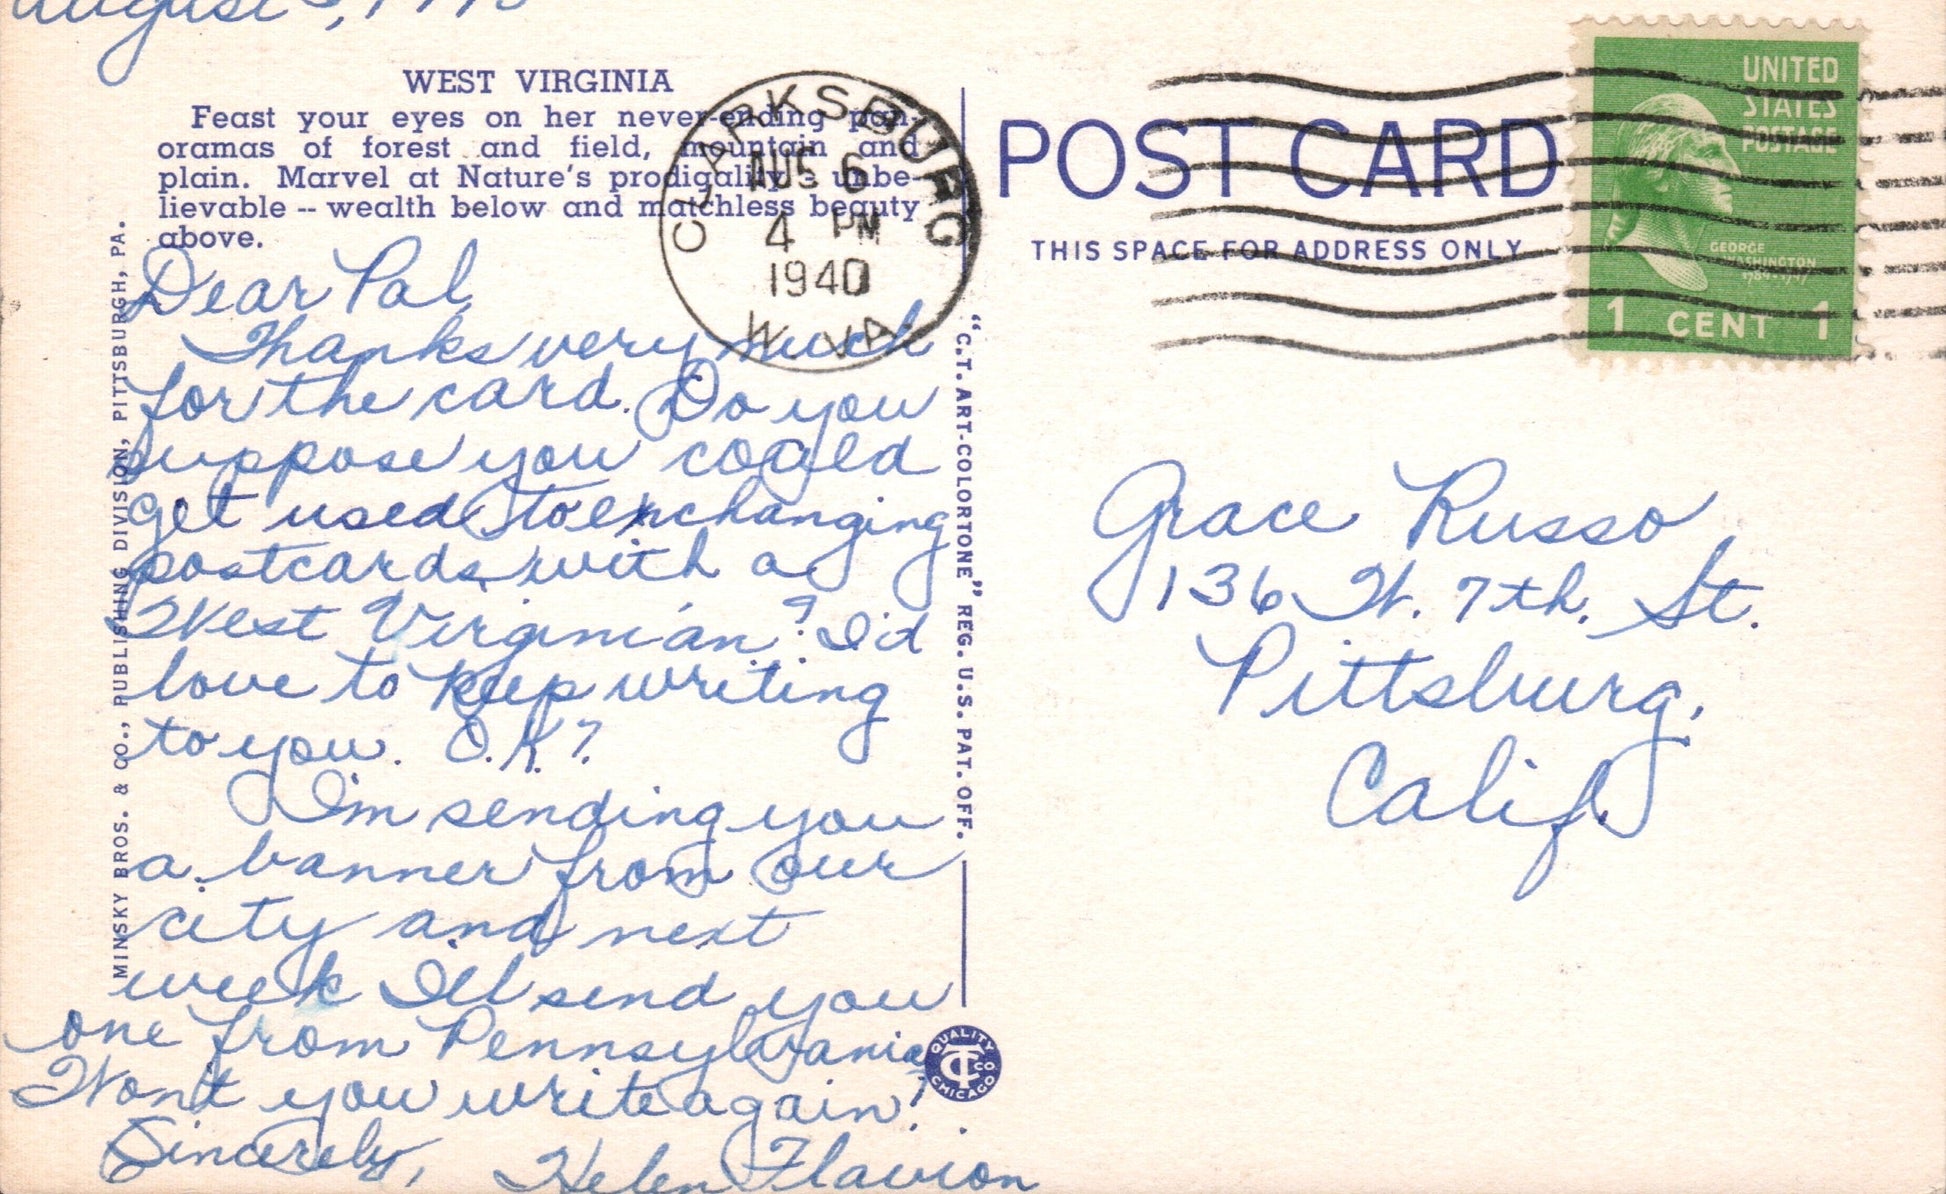 August
WEST VIRGINIA
Feast your eyes on her never-ending pan-
oramas of forest and field, mountain and
plain. Marvel at Nature's prodigality - unbe-
lievable -- wealth below and matchless beauty
above.
CLARKSBURG
AUG 6
4 PM
1940
W. VA.
Dear Pal,
Thanks very much
for the card. Do you
suppose you could
get used to exchanging
postcards with a
West Virginian? I'd
love to keep writing
to you. O.K.?
I'm sending you
a banner from our
city and next
week I'll send you
one from Pennsylvania
Won't you write again?
Sincerely,
Helen
MINSKY BROS. & CO., PUBLISHING DIVISION, PITTSBURGH, PA.
"C.T. ART-COLORTONE" REG. U.S. PAT. OFF.
QUALITY
CT CO.
CHICAGO
POST CARD
THIS SPACE FOR ADDRESS ONLY
UNITED
STATES
POSTAGE
GEORGE
WASHINGTON
1 CENT 1
Grace Russo
136 W. 7th. St.
Pittsburg,
Calif.